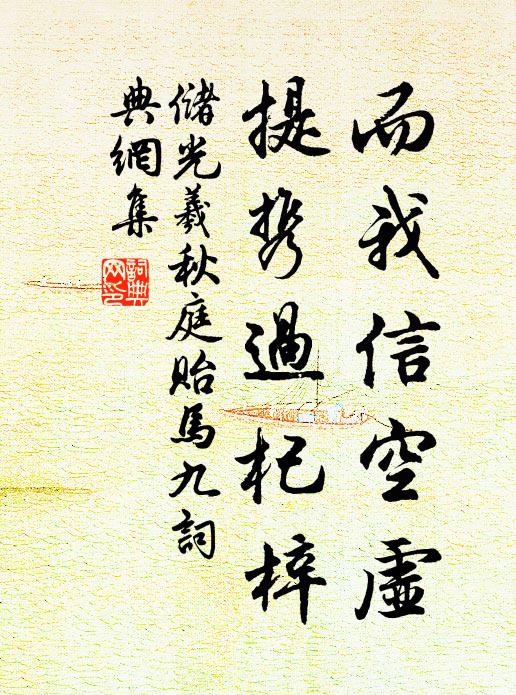 而我信空虛
提携過杞梓
儲光羲秋庭貽馬九詞
典網集
詞典網印